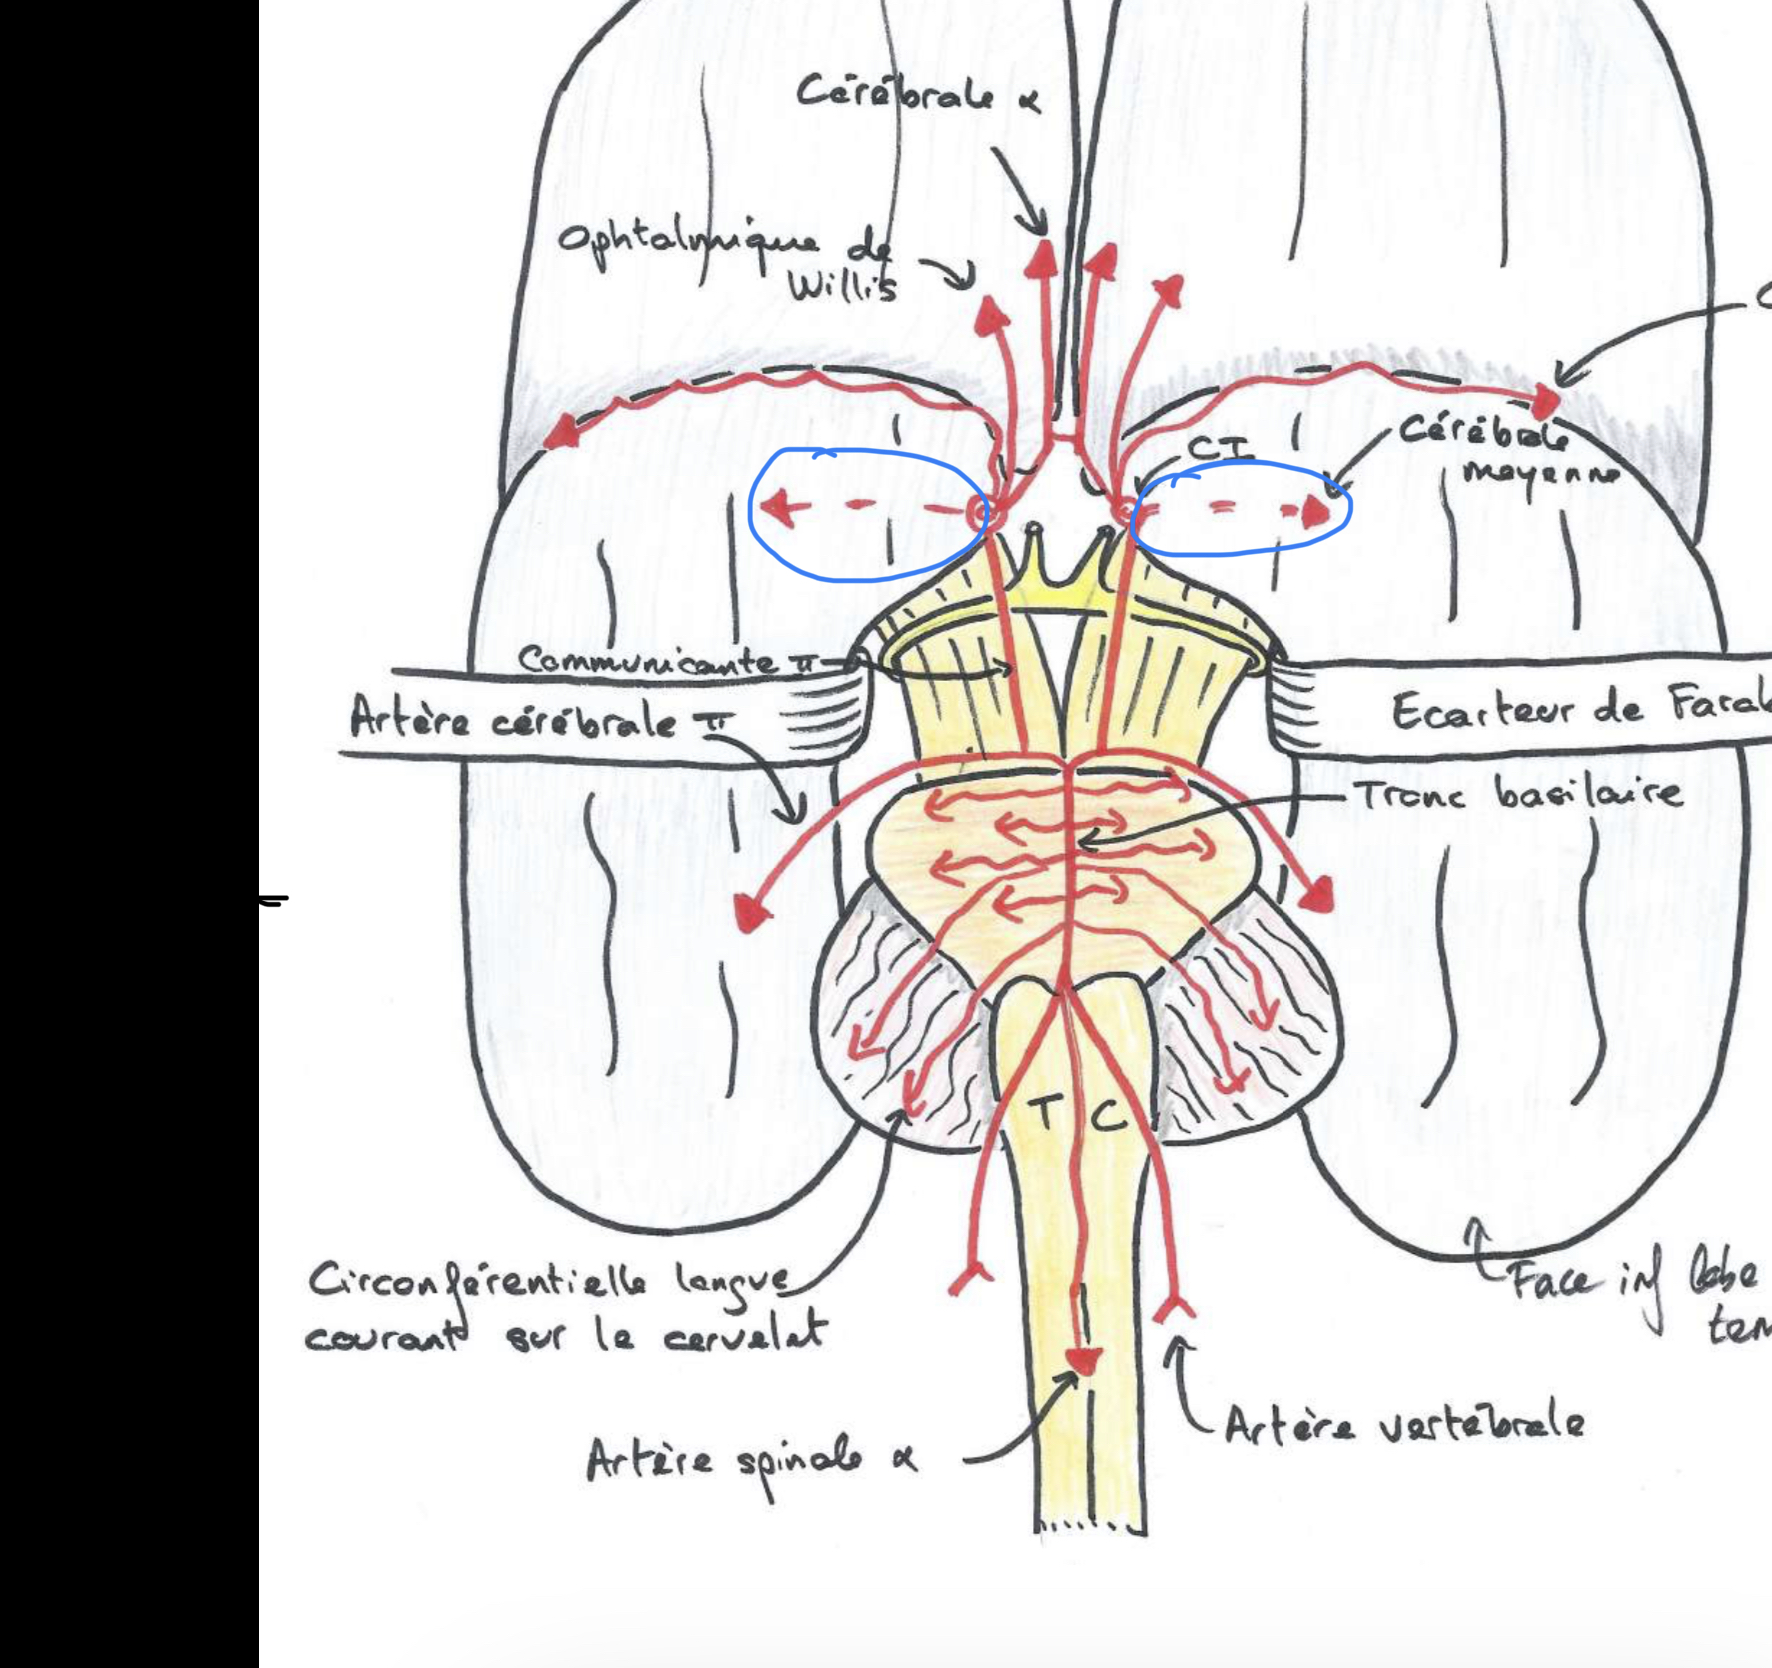 Cérébrale α
Ophtalmique de
Willis
CI
Cérébrale
moyenne
Communicante π
Artère cérébrale π
Ecarteur de Farab
Tronc basilaire
T C
Circonférentielle longue
courant sur le cervelet
Face inf lobe
tem
Artère vertébrale
Artère spinale α